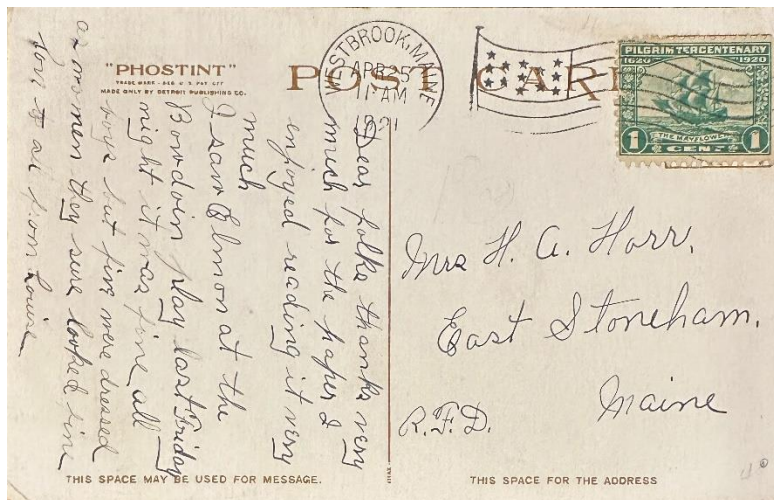 "PHOSTINT"
TRADE MARK - REG. U.S. PAT. OFF.
MADE ONLY BY DETROIT PUBLISHING CO.
POST CARD
WESTBROOK, MAINE
APR 25
11 AM
1921
PILGRIM TERCENTENARY
1620 1920
THE MAYFLOWER
1 CENT 1
Dear folks thanks very
much for the paper I
enjoyed reading it very
much
I saw Elmon at the
Bowdoin play last Friday
night it was fine all
boys but five were dressed
as women they sure looked fine
love to all from Louise
Mrs H. A. Horr,
East Stoneham,
Maine
R.F.D.
THIS SPACE MAY BE USED FOR MESSAGE.
THIS SPACE FOR THE ADDRESS